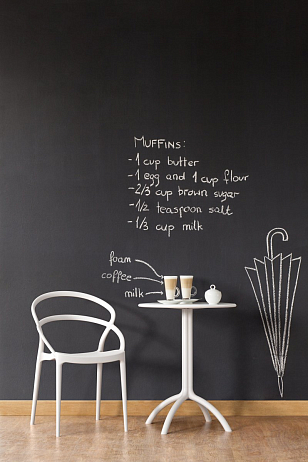 MUFFINS:
- 1 cup butter
- 1 egg and 1 cup flour
- 2/3 cup brown sugar
- 1/2 teaspoon salt
- 1/3 cup milk
foam
coffee
milk